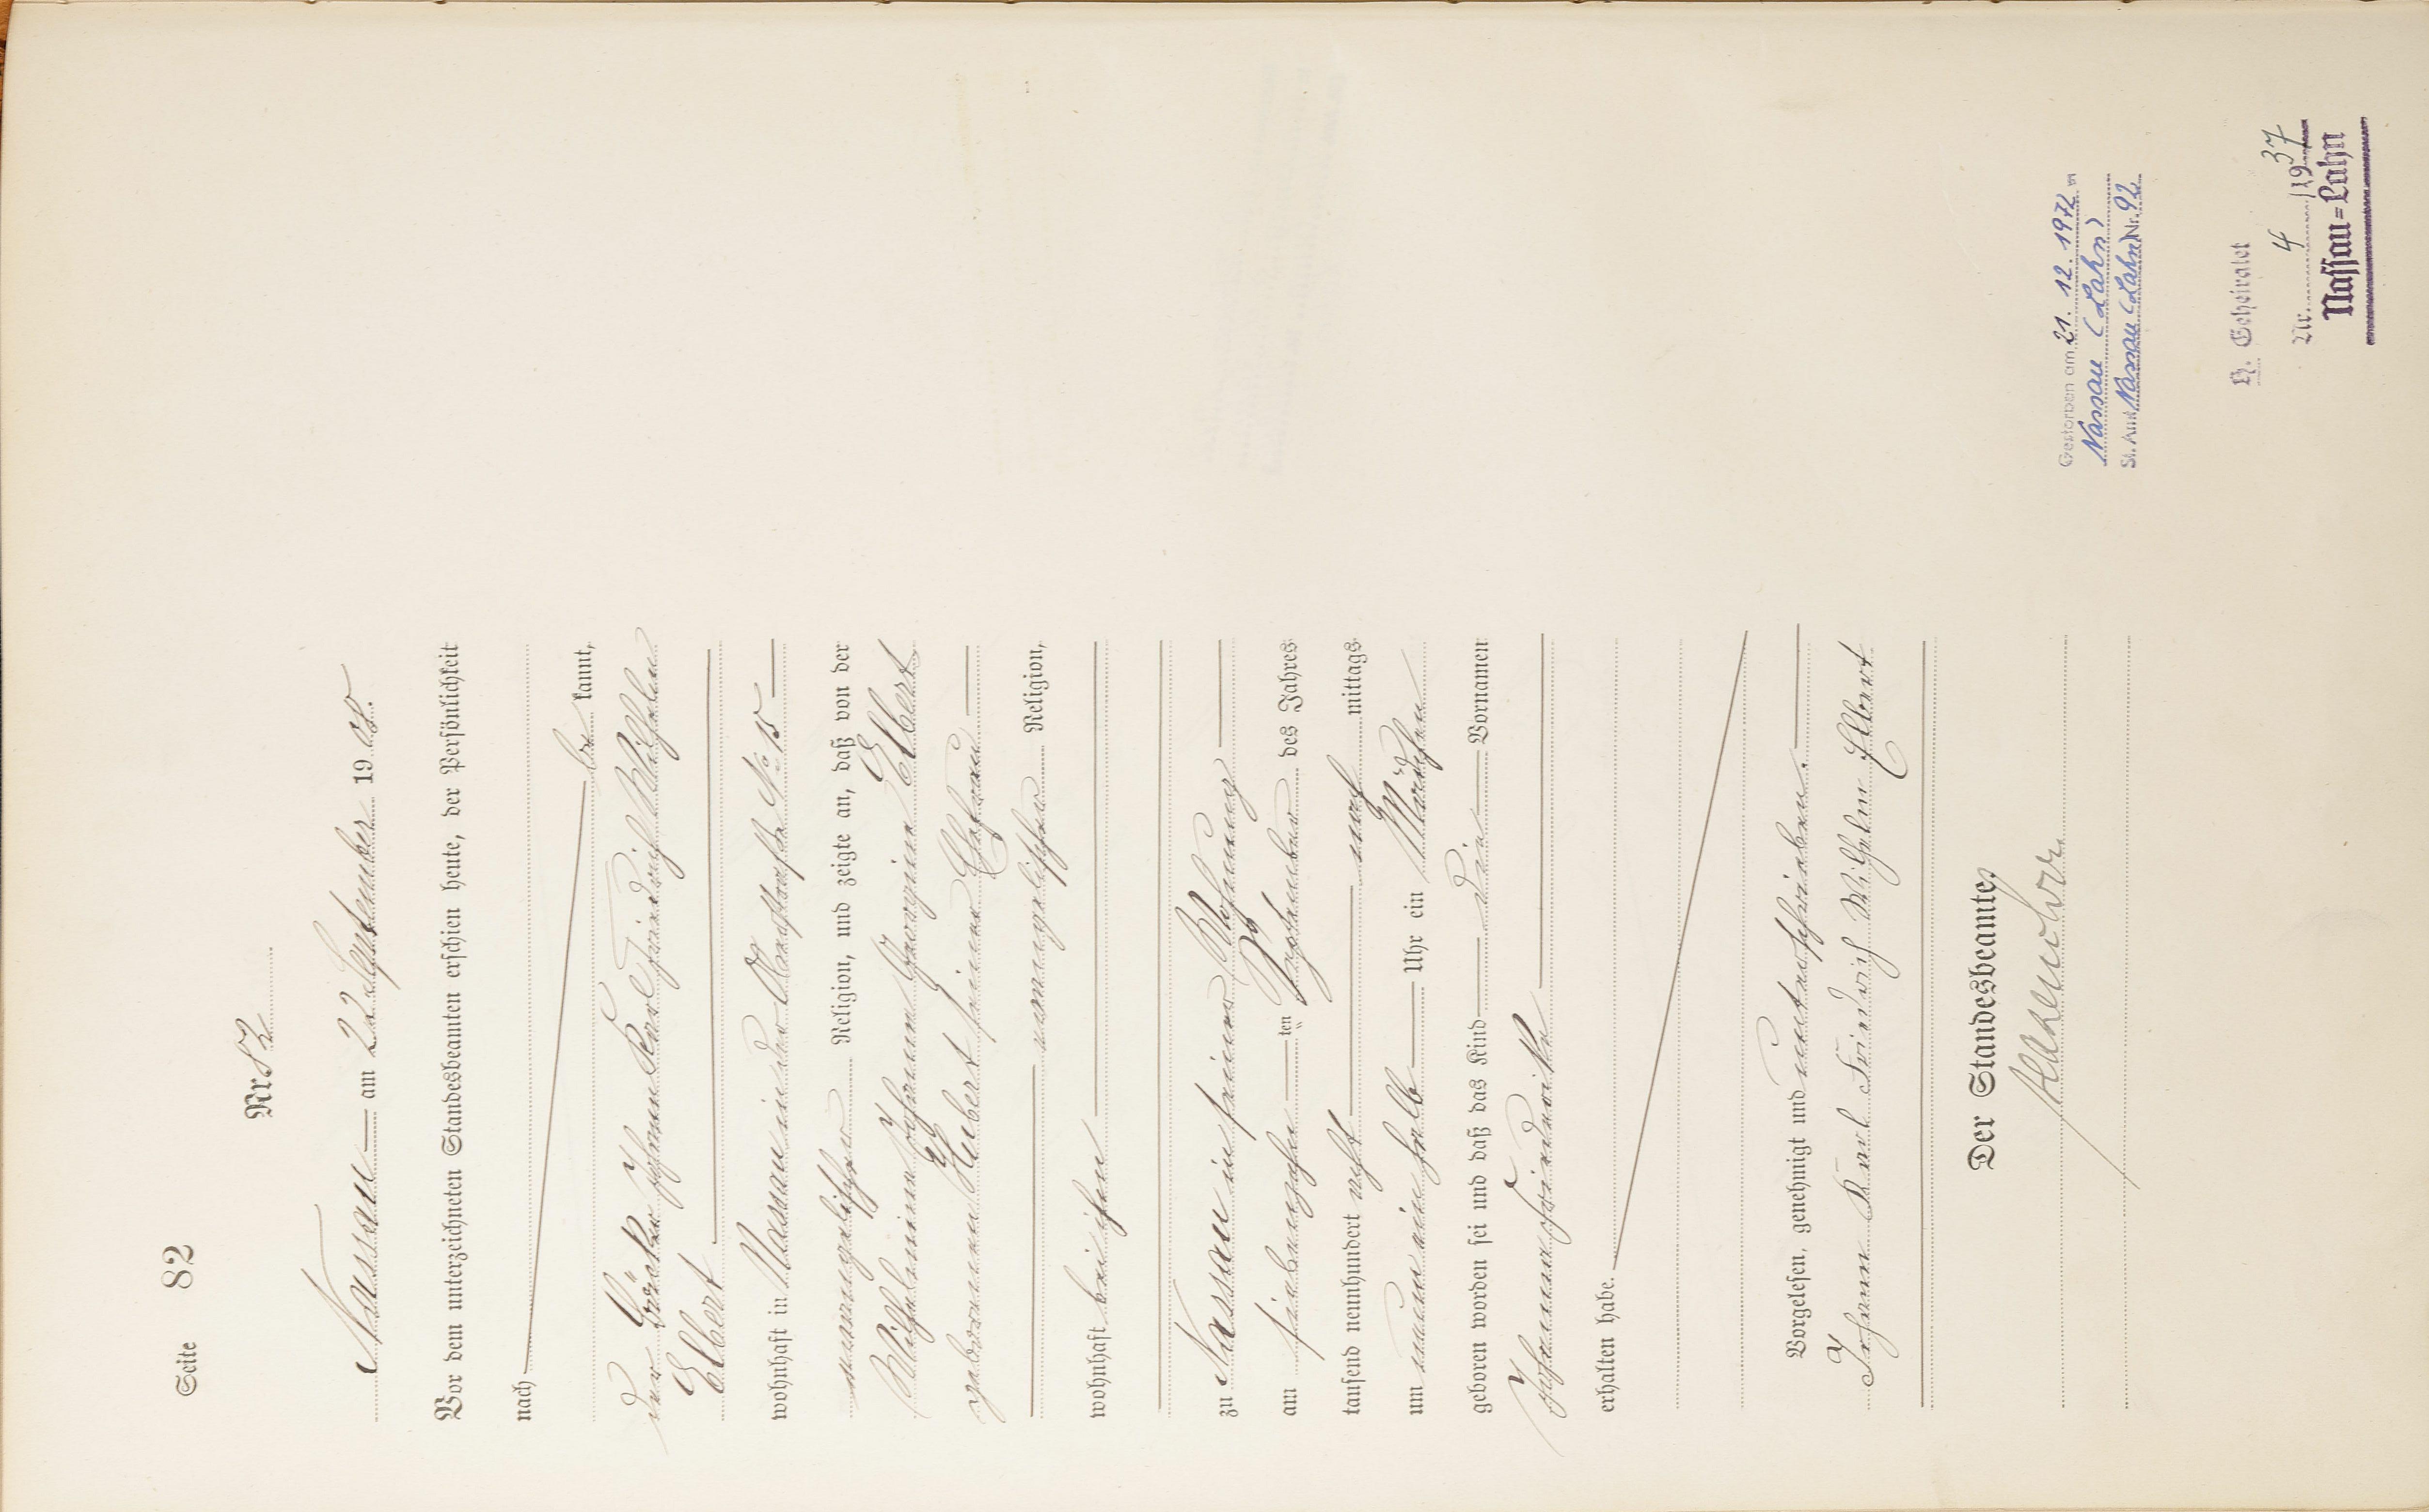 Seite 82
Nr. 82
Nassau am 22 September 1908.
Vor dem unterzeichneten Standesbeamten erschien heute, der Persönlichkeit
nach
be kannt,
der Bäcker Johann Karl Friedrich Wilhelm
Elbert
wohnhaft in Nassau in der No 15
evangelischer Religion, und zeigte an, daß von der
Wilhelmine Johanne Georgine Elbert
geborenen Hubert seiner Ehefrau
evangelischer Religion,
wohnhaft bei ihm
zu Nassau in seiner Wohnung
am siebenzehn ten September des Jahres
tausend neunhundert acht nach mittags
um neun ein halb Uhr ein Mädchen
geboren worden sei und daß das Kind die Vornamen
Johanna Friederike
erhalten habe.
Vorgelesen, genehmigt und unterschrieben.
Johann Karl Friedrich Wilhelm Elbert
Der Standesbeamte,
Gestorben am 21. 12. 1972 in
Nassau (Lahn)
St. Amt Nassau (Lahn) Nr. 92
H. Geheiratet
Nr. 4 /1937
Nassau=Lahn